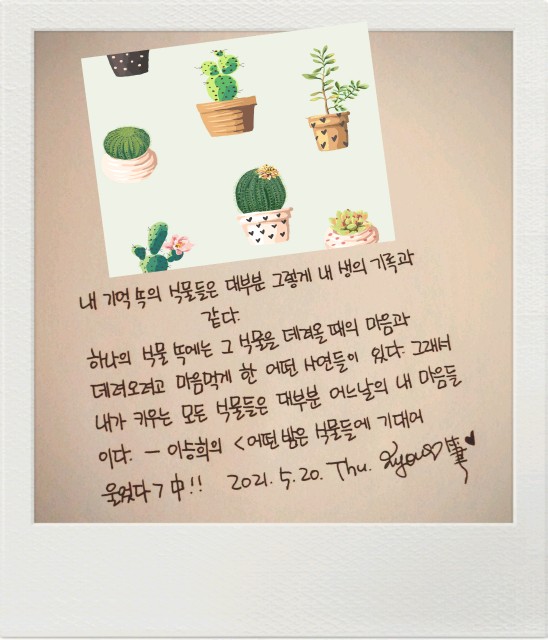 내 기억 속의 식물들은 대부분 그렇게 내 생의 기록과
같다.
하나의 식물 속에는 그 식물을 데려올 때의 마음과
데려오려고 마음먹게 한 어떤 사연들이 있다. 그래서
내가 키우는 모든 식물들은 대부분 어느날의 내 마음들
이다. - 이승희의 <어떤 밤은 식물들에 기대어
울었다> 中!! 2021. 5. 20. Thu.